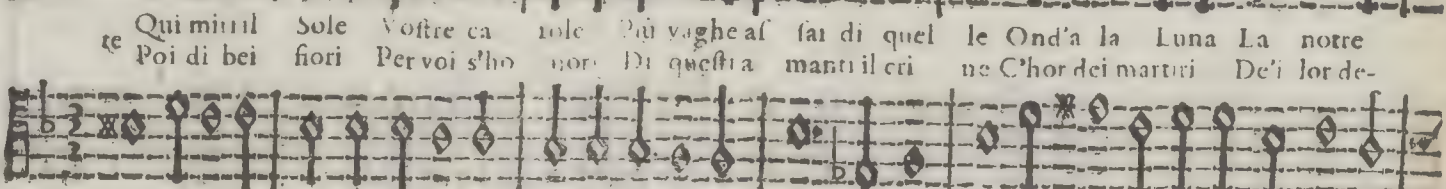 te Qui miri il Sole Vostre ca role Più vaghe as sai di quel le Ond'a la Luna La notte
Poi di bei fiori Per voi s'ho nori Di questi a manti il cri ne C'hor dei martiri De'i lor de-